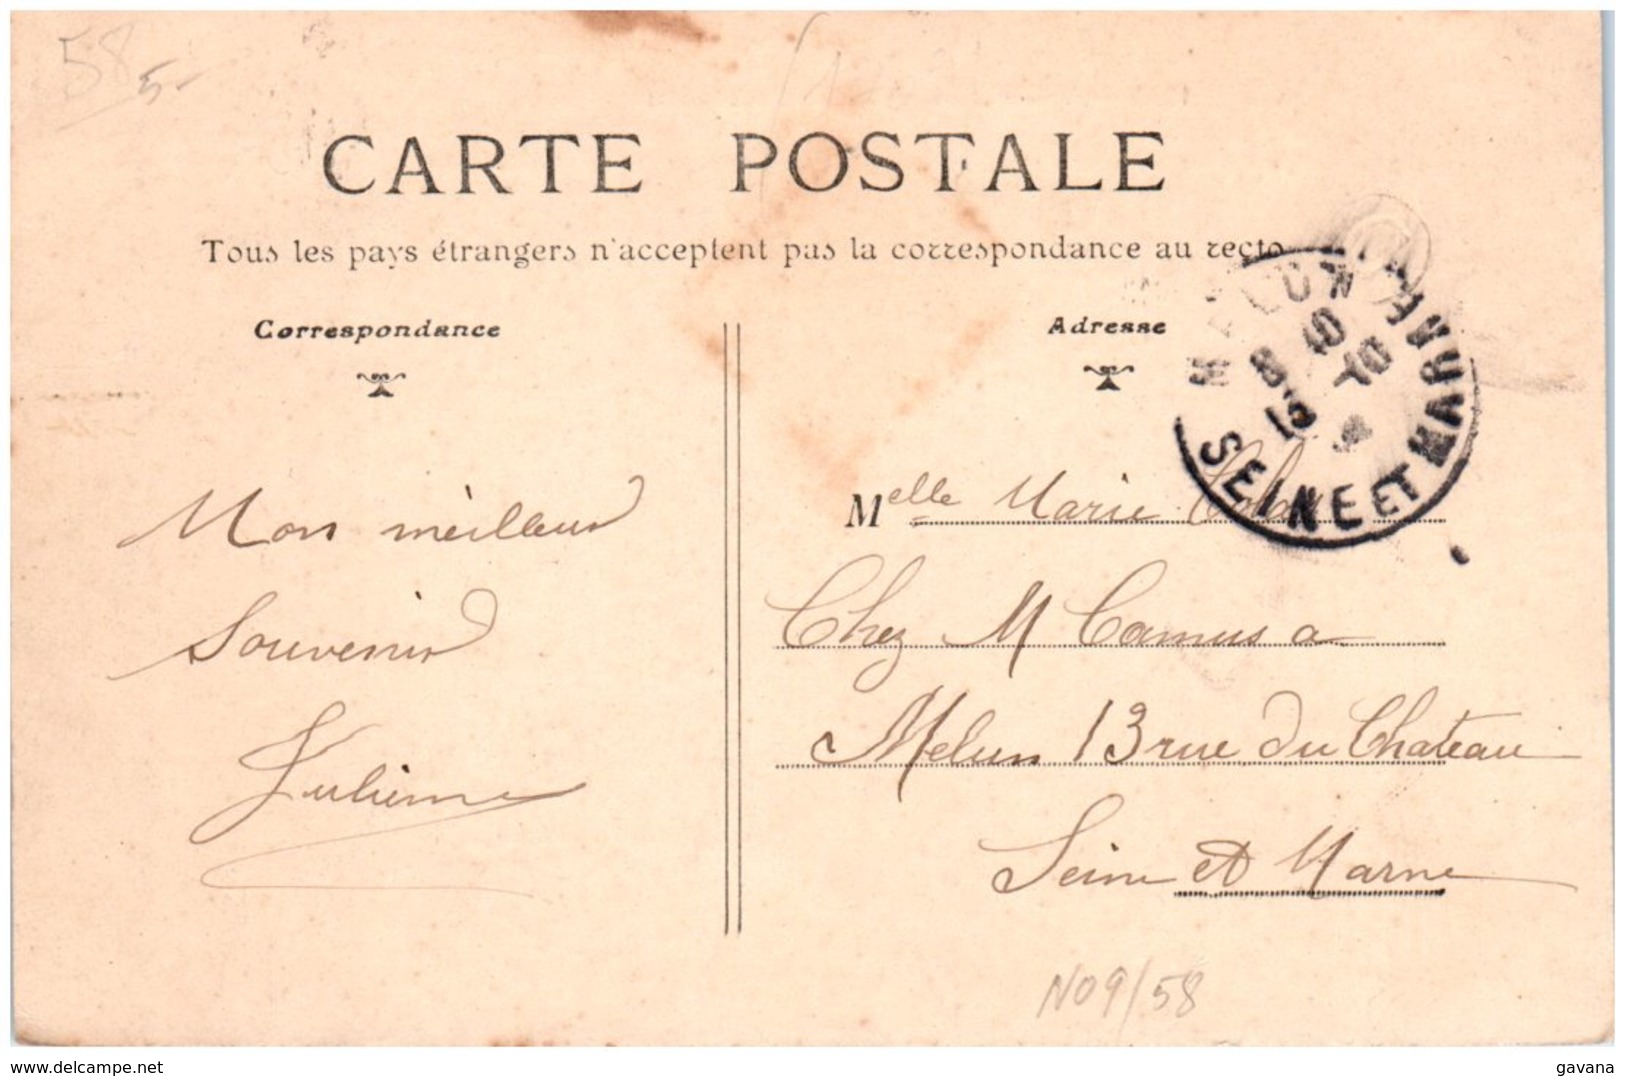 58
5-
CARTE POSTALE
Tous les pays étrangers n'acceptent pas la correspondance au recto
Correspondance
Adresse
MELUN
8 10
13 -10
SEINE ET MARNE
Mon meilleur
Souvenir
Julienne
Melle Marie
Chez M Camus a
Melun 13 rue du Chateau
Seine et Marne
N09/58
delcampe.net
gavana